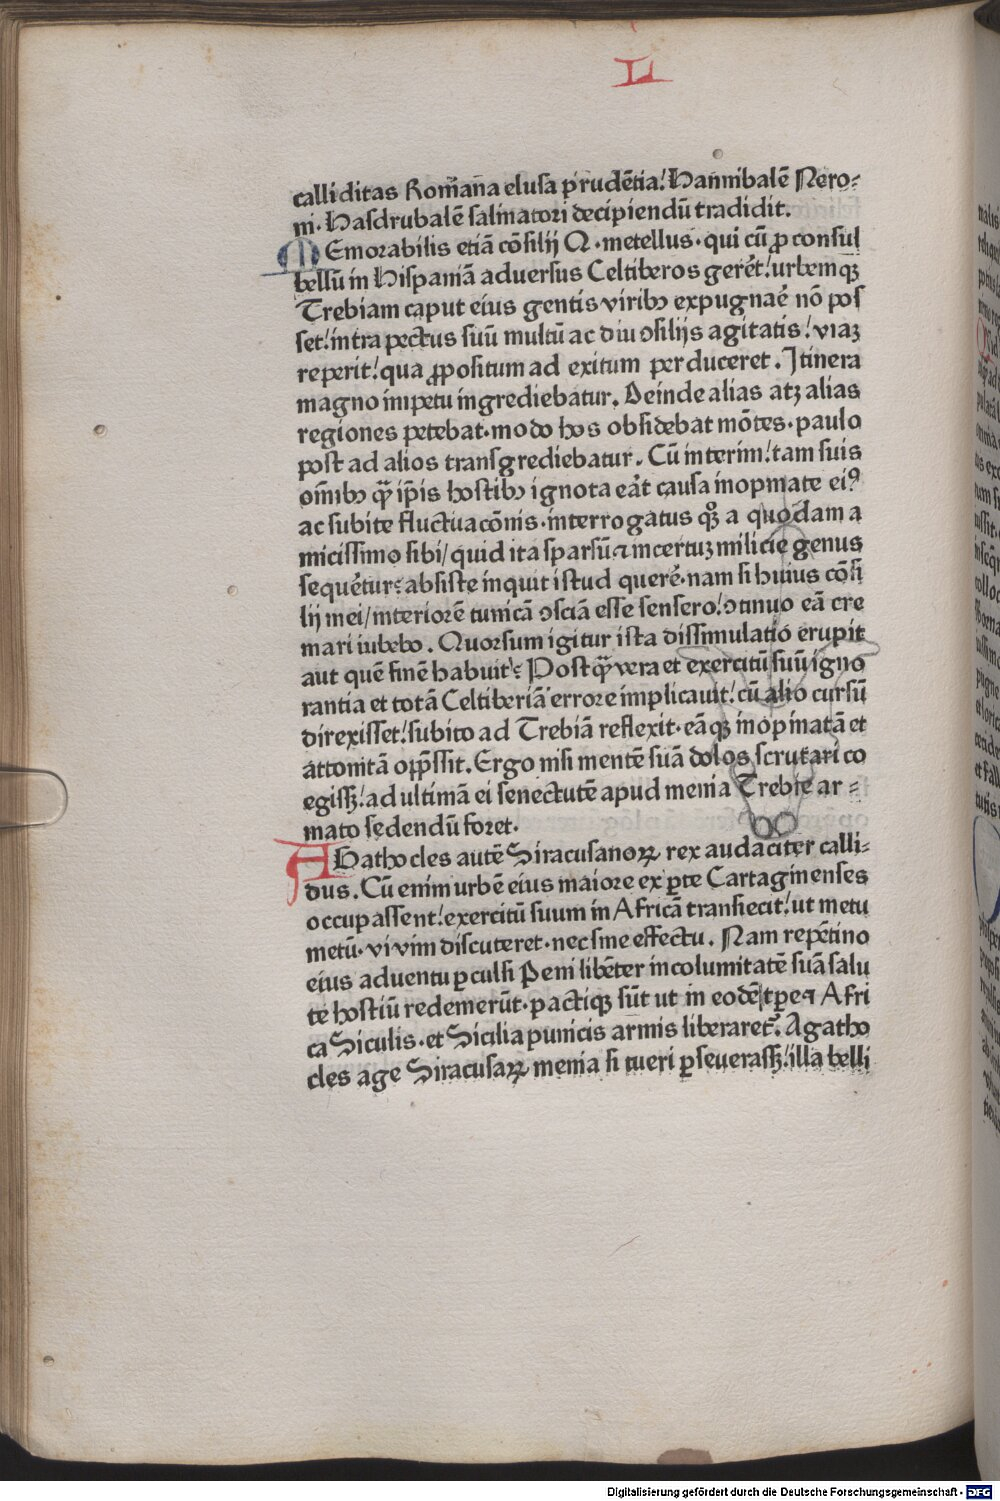 L
calliditas Romāna elusa prudētia! Hannibalē Nero-
ni· Hasdrubalē salinatori decipiendū tradidit.
MEmorabilis etiā cōsilij Q·metellus·qui cū ꝓconsul
bellū in Hispaniā adversus Celtiberos gerēt! urbemqꝫ
Trebiam caput eius gentis viribꝰ expugnaē nō pos
set! intra pectus suū multū ac diu ↄsilijs agitatis! viaꝫ
reperit! qua ꝓpositum ad exitum perduceret. Itinera
magno impetu ingrediebatur. Deinde alias atqꝫ alias
regiones petebat·modo hos obsidebat mōtes·paulo
post ad alios transgrediebatur. Cū interim! tam suis
oīnibꝰ qꝫ̄ ip̄is hostibꝰ ignota eāt causa inopinate eiꝰ
ac subite fluctuacōnis·interrogatus qꝫ a quodam a
micissimo sibi/ quid ita sparsū ⁊ incertuꝫ milicie genus
sequētur? absiste inquit istud querē·nam si huius cōsi
lij mei/ interiorē tunicā ↄsciā esse sensero! ↄtinuo eā cre
mari iubebo. Quorsum igitur ista dissimulatio erupit
aut quē finē habuit? Postqꝫ̄ vera et exercitū suū igno
rantia et totā Celtiberiā errore implicavit! cū alio cursū
direxisset! subito ad Trebiā reflexit·eāqꝫ inopinatā et
attonitā opp̄ssit. Ergo nisi mentē suā dolos scrutari co
egisꝫ! ad ultimā ei senectutē apud menia Trebie ar-
mato sedendū foret.
AHathocles autē Siracusanoꝝ rex audaciter calli-
dus. Cū enim urbē eius maiore ex ꝑte Cartaginenses
occupassent! exercitū suum in Africā transiecit! ut metu
metū·vi vim discuteret·nec sine effectu. Nam repētino
eius adventu ꝑculsi Peni libēter incolumitatē suā salu
te hostiū redemerūt·pactiqꝫ sūt ut in eodē tꝑe ⁊ Afri
ca Siculis·et Sicilia punicis armis liberaret̄. Agatho
cles age Siracusaꝝ menia si tueri ꝑseverasꝫ! illa belli
Digitalisierung gefördert durch die Deutsche Forschungsgemeinschaft - DFG